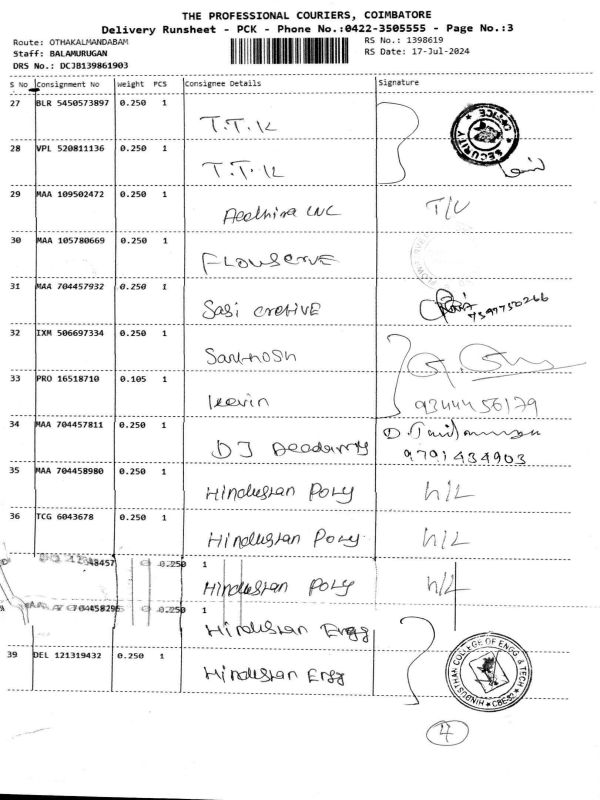 THE PROFESSIONAL COURIERS, COIMBATORE
Delivery Runsheet - PCK - Phone No.:0422-3505555 - Page No.:3
Route: OTHAKALMANDABAM
RS No.: 1398619
Staff: BALAMURUGAN
RS Date: 17-Jul-2024
DRS No.: DCJB139861903
S No Consignment No Weight PCS Consignee Details Signature
27 BLR 5450573897 0.250 1 T.T.K
SECURITY OFFICE
28 VPL 520811136 0.250 1 T.T.K
29 MAA 109502472 0.250 1 T/C
30 MAA 105780669 0.250 1 Flowserve
31 MAA 704457932 0.250 1 Sasi cretive
7397750266
32 IXM 506697334 0.250 1 Santhosh
33 PRO 16518710 0.105 1 Kevin
9344456179
34 MAA 704457811 0.250 1 DJ
9791434903
35 MAA 704458980 0.250 1 Hindustan Poly h/L
36 TCG 6043678 0.250 1 Hindustan Poly h/L
48457 0.250 1 Hindustan Poly h/L
704458295 0.250 1 Hindustan Engg
39 DEL 121319432 0.250 1 Hindustan Engg
HINDUSTHAN COLLEGE OF ENGG & TECH CBE-32
4